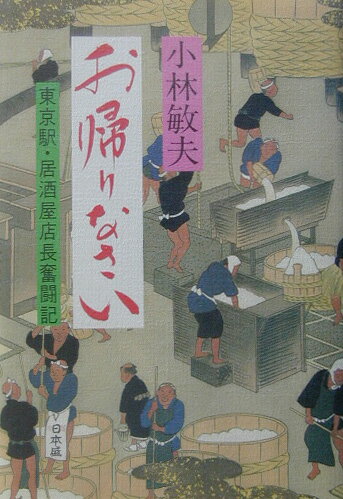 小林敏夫
お帰りなさい
東京駅・居酒屋店長奮闘記
日本盛